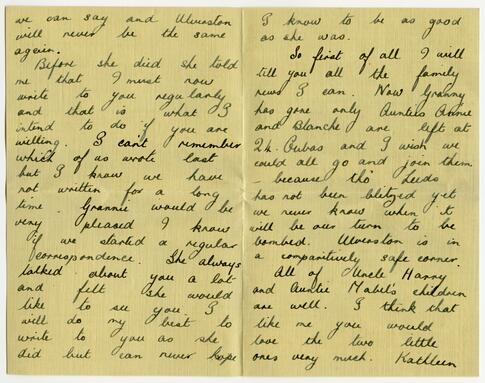 we can say and Ulverston
will never be the same
again.
Before she died she told
me that I must now
write to you regularly
and that is what I
intend to do if you are
willing. I can't remember
which of us wrote last
but I know we have
not written for a long
time. Grannie would be
very pleased I know
if we started a regular
correspondence. She always
talked about you a lot
and felt she would
like to see you. I
will do my best to
write to you as she
did but can never hope
I know to be as good
as she was.
So first of all I will
tell you all the family
news I can. Now Granny
has gone only Aunties Annie
and Blanche are left at
24. Cubas and I wish we
could all go and join them
- because tho' Leeds
has not been blitzed yet
we never know when it
will be our turn to be
bombed. Ulverston is in
a comparitively safe corner.
All of Uncle Harry
and Auntie Mabel's children
are well. I think that
like me you would
love the two little
ones very much. Kathleen